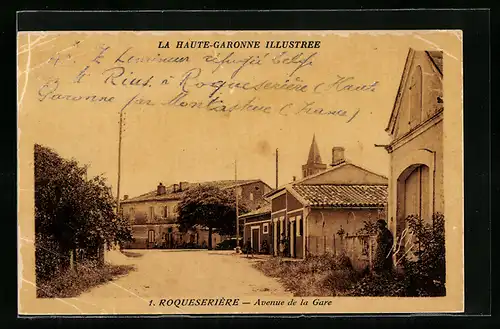 LA HAUTE-GARONNE ILLUSTREE
réfugié belge
à Rius à Roqueserière (Haute
Garonne par Montastruc (France)
1. ROQUESERIÈRE — Avenue de la Gare